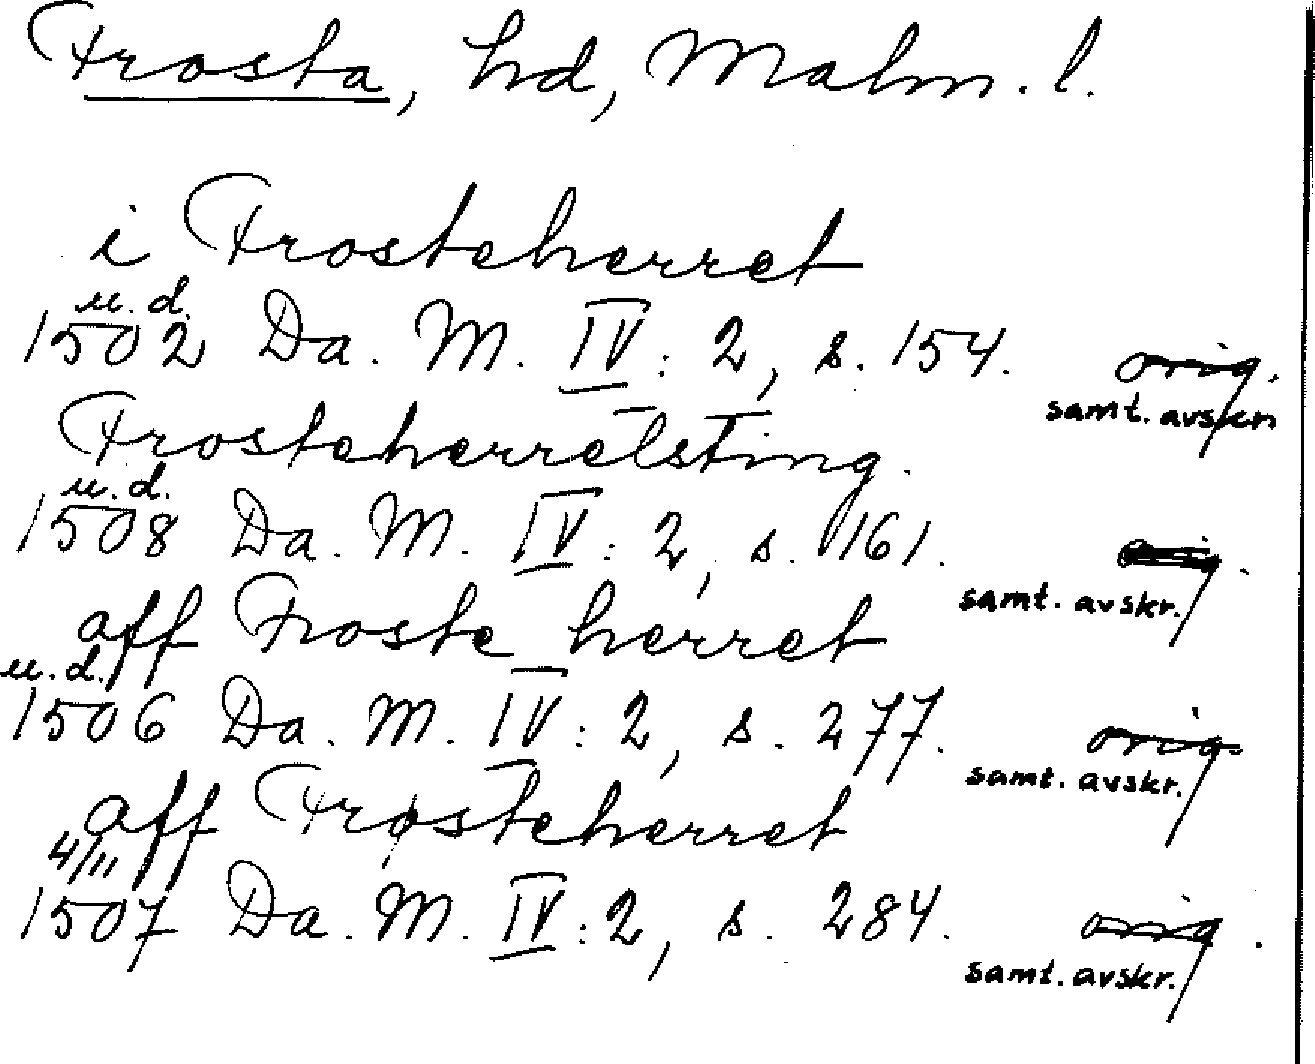 Frosta, hd, Malm. l.
i Frosteherret
u. d.
1502 Da. M. IV: 2, s. 154. orig.
samt. avskr.
Frosteherretsting.
u. d.
1508 Da. M. IV: 2, s. 161. orig.
samt. avskr.
aff Froste herret
u. d.
1506 Da. M. IV: 2, s. 277. orig.
samt. avskr.
aff Frøsteherret
4/11
1507 Da. M. IV: 2, s. 284. orig.
samt. avskr.